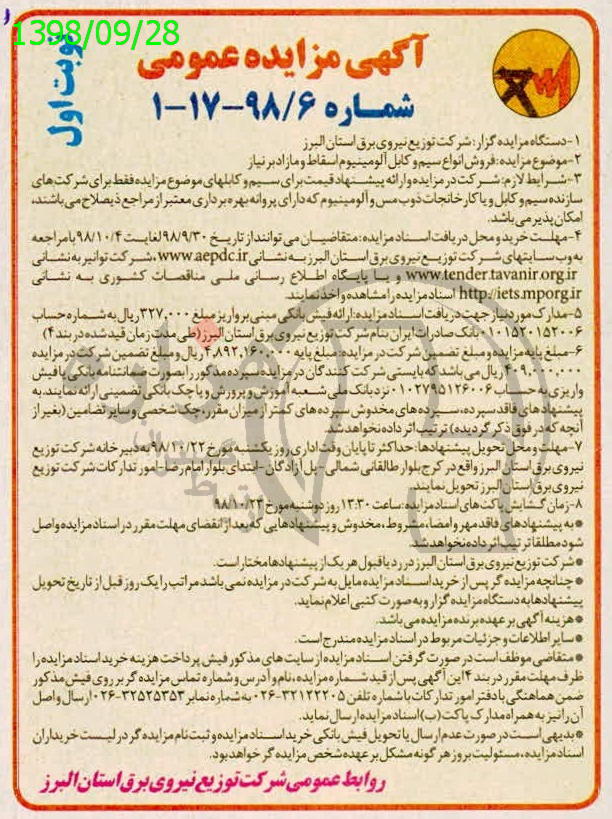 1398/09/28
نوبت اول
آگهی مزایده عمومی
شماره ۹۸/۶-۱۷-۱
۱-دستگاه مزایده گزار: شرکت توزیع نیروی برق استان البرز
۲-موضوع مزایده: فروش انواع سیم و کابل آلومینیوم اسقاط و مازاد بر نیاز
۳-شرایط لازم: شرکت در مزایده و ارائه پیشنهاد قیمت برای سیم و کابلهای موضوع مزایده فقط برای شرکت های
سازنده سیم و کابل و یا کارخانجات ذوب مس و آلومینیوم که دارای پروانه بهره برداری معتبر از مراجع ذیصلاح می باشند،
امکان پذیر می باشد.
۴-مهلت خرید و محل دریافت اسناد مزایده: متقاضیان می توانند از تاریخ ۹۸/۹/۳۰ لغایت ۹۸/۱۰/۴ با مراجعه
به وب سایتهای شرکت توزیع نیروی برق استان البرز به نشانی www.aepdc.ir، شرکت توانیر به نشانی
www.tender.tavanir.org.ir و یا پایگاه اطلاع رسانی ملی مناقصات کشوری به نشانی
http://iets.mporg.ir اسناد مزایده را مشاهده و اخذ نمایند.
۵-مدارک مورد نیاز جهت دریافت اسناد مزایده: ارائه فیش بانکی مبنی بر واریز مبلغ ۳۲۷,۰۰۰ ریال به شماره حساب
۰۱۰۱۵۲۰۱۵۲۰۰۶ بانک صادرات ایران بنام شرکت توزیع نیروی برق استان البرز (طی مدت زمان قید شده در بند ۴)
۶-مبلغ پایه مزایده و مبلغ تضمین شرکت در مزایده: مبلغ پایه ۴,۸۹۲,۱۶۰,۰۰۰ ریال و مبلغ تضمین شرکت در مزایده
۴۰۹,۰۰۰,۰۰۰ ریال می باشد که بایستی شرکت کنندگان در مزایده سپرده مذکور را بصورت ضمانتنامه بانکی یا فیش
واریزی به حساب ۰۱۰۲۷۹۵۱۲۶۰۰۶ نزد بانک ملی شعبه آموزش و پرورش و یا چک بانکی تضمینی ارائه نمایند. به
پیشنهادهای فاقد سپرده، سپرده های مخدوش سپرده های کمتر از میزان مقرر، چک شخصی و سایر تضامین (بغیر از
آنچه که در فوق ذکر گردیده) ترتیب اثر داده نخواهد شد.
۷-مهلت و محل تحویل پیشنهادها: حداکثر تا پایان وقت اداری روز یکشنبه مورخ ۹۸/۱۰/۲۲ به دبیرخانه شرکت توزیع
نیروی برق استان البرز واقع در کرج بلوار طالقانی شمالی - پل آزادگان - ابتدای بلوار امام رضا - امور تدارکات شرکت توزیع
نیروی برق استان البرز تحویل نمایند.
۸-زمان گشایش پاکت های اسناد مزایده: ساعت ۱۳:۳۰ روز دوشنبه مورخ ۹۸/۱۰/۲۳
* به پیشنهادهای فاقد مهر و امضا، مشروط، مخدوش و پیشنهادهایی که بعد از انقضای مهلت مقرر در اسناد مزایده واصل
شود مطلقا ترتیب اثر داده نخواهد شد
* شرکت توزیع نیروی برق استان البرز در رد یا قبول هر یک از پیشنهادها مختار است.
* چنانچه مزایده گر پس از خرید اسناد مزایده مایل به شرکت در مزایده نمی باشد مراتب را یک روز قبل از تاریخ تحویل
پیشنهادها به دستگاه مزایده گزار و به صورت کتبی اعلام نماید.
* هزینه آگهی بر عهده برنده مزایده می باشد.
* سایر اطلاعات و جزئیات مربوط در اسناد مزایده مندرج است.
* متقاضی موظف است در صورت گرفتن اسناد مزایده از سایت های مذکور فیش پرداخت هزینه خرید اسناد مزایده را
ظرف مهلت مقرر در بند ۴ این آگهی پس از قید شماره مزایده، نام و آدرس و شماره تماس مزایده گر بر روی فیش مذکور
ضمن هماهنگی با دفتر امور تدارکات با شماره تلفن ۳۲۱۲۲۲۰۵-۰۲۶ به شماره نمابر ۳۲۵۲۵۳۵۳-۰۲۶ ارسال و اصل
آن را نیز به همراه مدارک پاکت (ب) اسناد مزایده ارسال نماید.
* بدیهی است در صورت عدم ارسال یا تحویل فیش بانکی خرید اسناد مزایده و ثبت نام مزایده گر در لیست خریداران
اسناد مزایده، مسئولیت بروز هر گونه مشکل بر عهده شخص مزایده گر خواهد بود.
روابط عمومی شرکت توزیع نیروی برق استان البرز